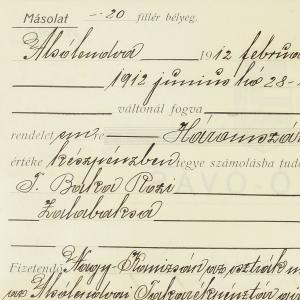 Másolat -.-20 fillér bélyeg.
Alsólendva 1912 februá
1912 junius hó 28-
váltónál fogva
rendelet em re Háromszáz
értéke készpénzben egye számolásba tud
T. Baka Rozi
Zalabaksa
Fizetendő Nagy-Kanizsán az osztrák m
az Alsólendvai Takarékpénztár